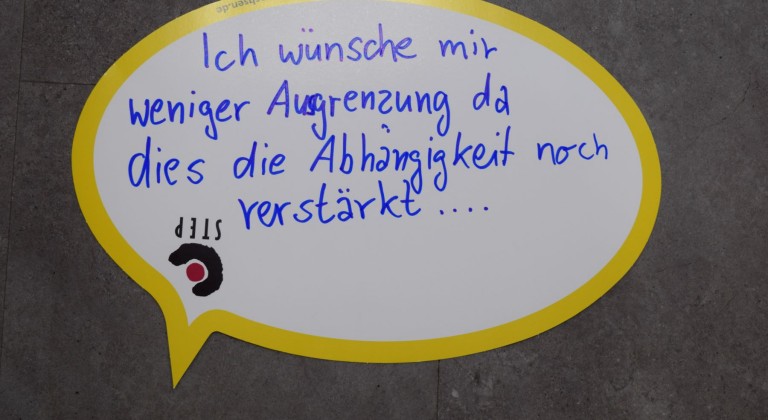 Ich wünsche mir
weniger Ausgrenzung da
dies die Abhängigkeit noch
verstärkt ....
STEP